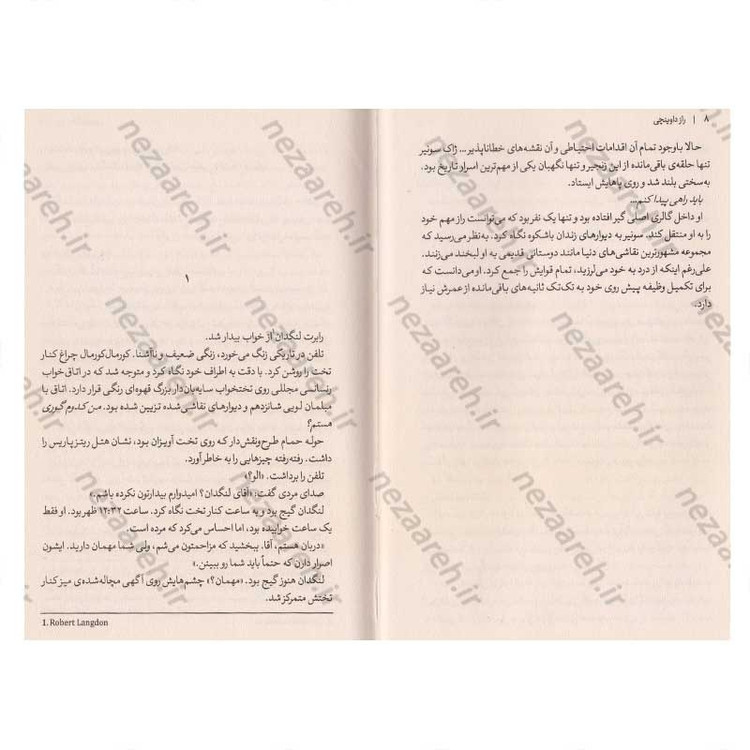 ۸ | راز داوینچی
حالا با وجود تمام آن اقدامات احتیاطی و آن نقشه‌های خطاناپذیر... ژاک سونیر
تنها حلقه‌ی باقی‌مانده از این زنجیر و تنها نگهبان یکی از مهم‌ترین اسرار تاریخ بود.
به‌سختی بلند شد و روی پاهایش ایستاد.
باید راهی پیدا کنم...
او داخل گالری اصلی گیر افتاده بود و تنها یک نفر بود که می‌توانست راز مهم خود
را به او منتقل کند. سونیر به دیوارهای زندان باشکوه نگاه کرد. به‌نظر می‌رسید که
مجموعه مشهورترین نقاشی‌های دنیا مانند دوستانی قدیمی به او لبخند می‌زنند.
علی‌رغم اینکه از درد به خود می‌لرزید، تمام قوایش را جمع کرد. او می‌دانست که
برای تکمیل وظیفه پیش روی خود به تک‌تک ثانیه‌های باقی‌مانده از عمرش نیاز
دارد.
۱
رابرت لنگدان¹ از خواب بیدار شد.
تلفن در تاریکی زنگ می‌خورد، زنگی ضعیف و ناآشنا. کورمال‌کورمال چراغ کنار
تخت را روشن کرد. با دقت به اطراف خود نگاه کرد و متوجه شد که در اتاق خواب
رنسانسی مجللی روی تختخواب سایه‌بان‌دار بزرگ قهوه‌ای رنگی قرار دارد. اتاق با
مبلمان لویی شانزدهم و دیوارهای نقاشی‌شده تزیین شده بود. من کدوم گوری
هستم؟
حوله حمام طرح‌ونقش‌دار که روی تخت آویزان بود، نشان هتل ریتز پاریس را
داشت. رفته‌رفته چیزهایی را به خاطر آورد.
تلفن را برداشت. «الو؟»
صدای مردی گفت: «آقای لنگدان؟ امیدوارم بیدارتون نکرده باشم.»
لنگدان گیج بود و به ساعت کنار تخت نگاه کرد. ساعت ۱۲:۳۲ ظهر بود. او فقط
یک ساعت خوابیده بود، اما احساس می‌کرد که مرده است.
«دربان هستم، آقا. ببخشید که مزاحمتون می‌شم، ولی شما مهمان دارید. ایشون
اصرار دارن که حتماً باید شما رو ببینن.»
لنگدان هنوز گیج بود. «مهمان؟» چشم‌هایش روی آگهی مچاله‌شده‌ی میز کنار
تختش متمرکز شد.
1. Robert Langdon
nezaareh.ir
nezaareh.ir
nezaareh.ir
nezaareh.ir
nezaareh.ir
nezaareh.ir
nezaareh.ir
nezaareh.ir
nezaareh.ir